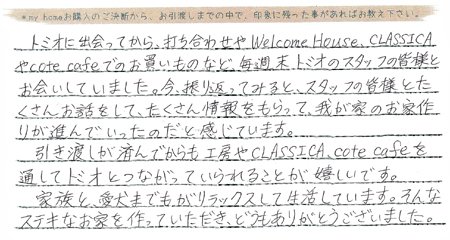 *my homeお購入のご決断から、お引渡しまでの中で、印象に残った事があればお教え下さい。
トミオに出会ってから、打ち合わせやWelcome House、CLASSICA
やcote cafeでのお買いものなど、毎週末トミオのスタッフの皆様と
お会いしていました。今、振り返ってみると、スタッフの皆様とた
くさんお話をして、たくさん情報をもらって、我が家のお家作
りが進んでいったのだと感じています。
引き渡しが済んでからも工房やCLASSICA、cote cafeを
通してトミオとつながっていられることが嬉しいです。
家族と、愛犬までもがリラックスして生活しています。そんな
ステキなお家を作っていただき、どうもありがとうございました。